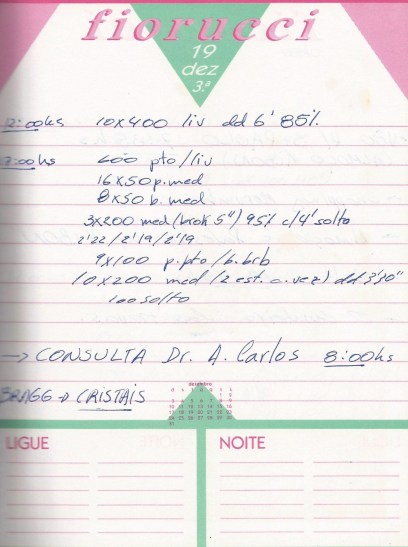 fiorucci
19
dez
3.ª
12:00hs 10x400 liv dd 6' 85%
17:00hs 600 pto/liv
16x50 p.med
8x50 b.med
3x200 med (brok 5") 95% c/4' solto
2'22/2'19/2'19
4x100 p.pto/b.brb
10x200 med (2 est. a. vez) dd 3'30"
100 solto
→ CONSULTA Dr. A. Carlos 8:00hs
BRAGG → CRISTAIS
dezembro
LIGUE
NOITE